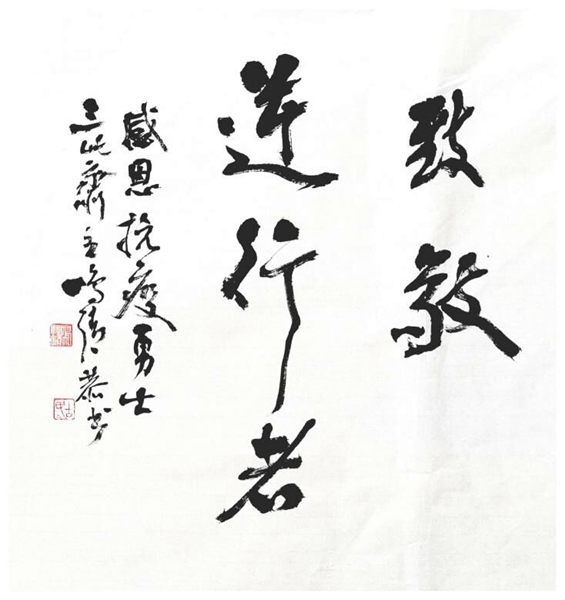 致敬
逆行者
感恩抗疫勇士
三此齋主鳴
恭书